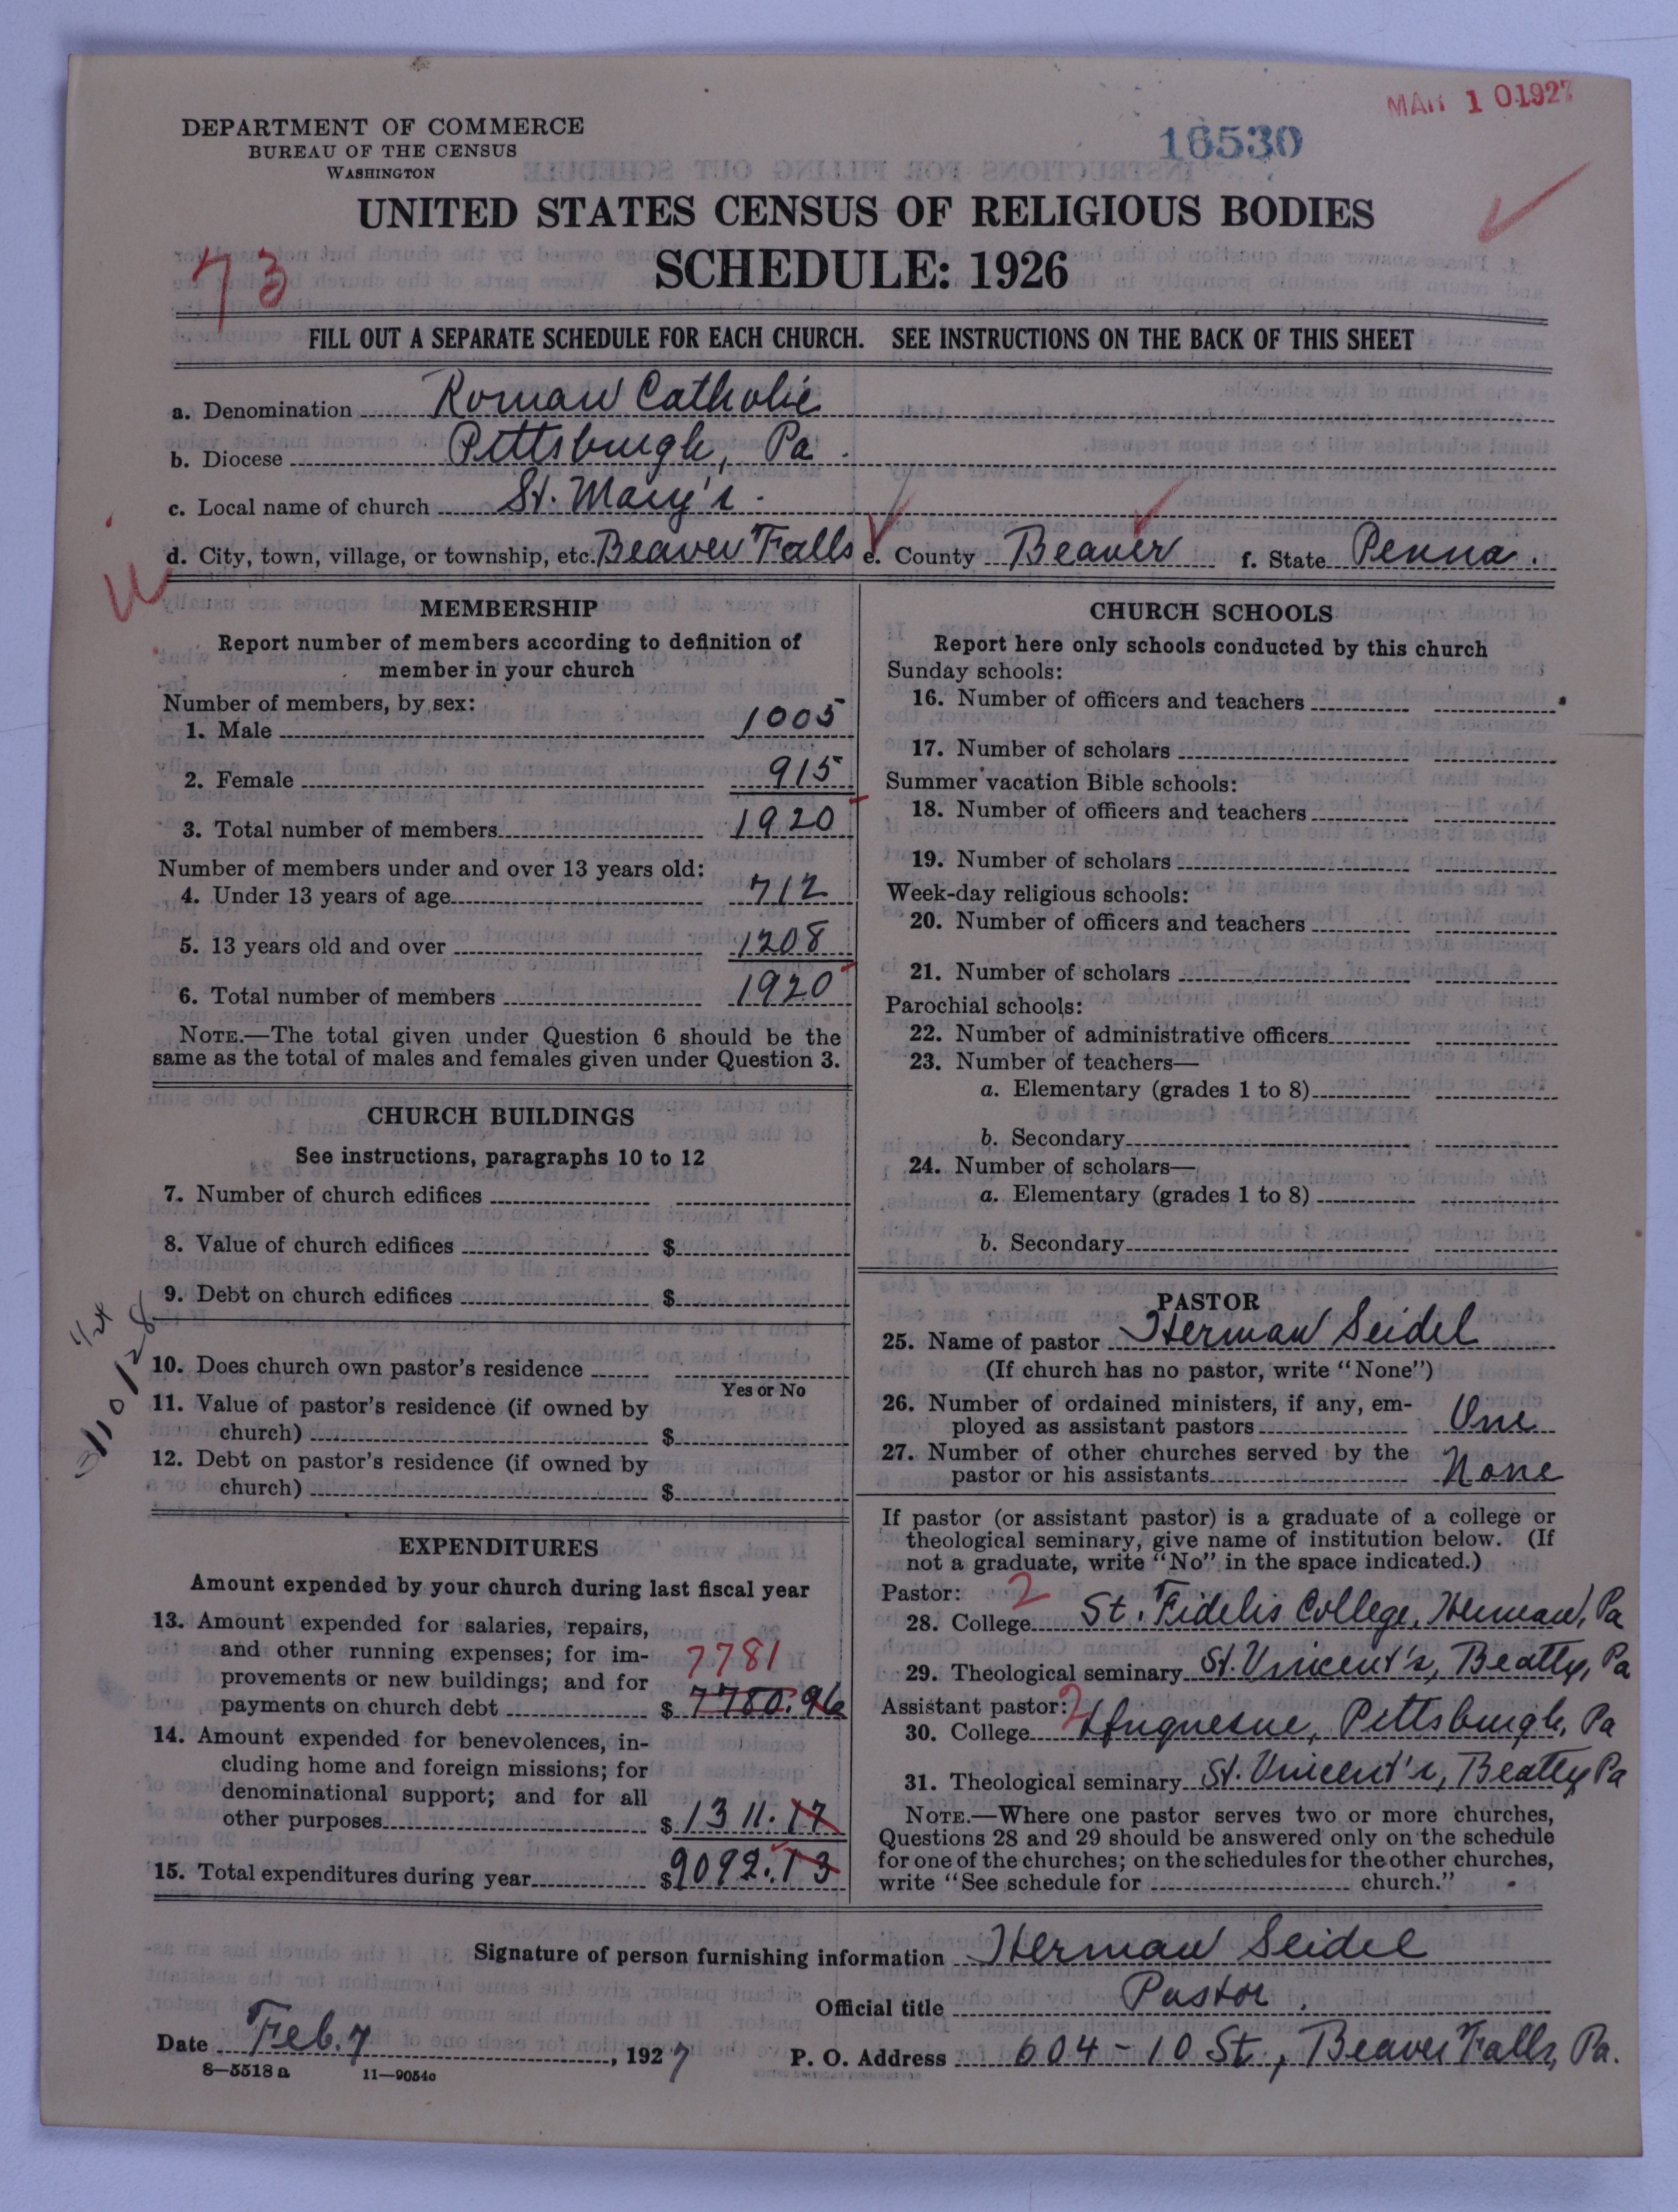 MAR 10 1927
DEPARTMENT OF COMMERCE
BUREAU OF THE CENSUS
WASHINGTON
16530
UNITED STATES CENSUS OF RELIGIOUS BODIES
SCHEDULE: 1926
73
FILL OUT A SEPARATE SCHEDULE FOR EACH CHURCH. SEE INSTRUCTIONS ON THE BACK OF THIS SHEET
a. Denomination Roman Catholic
b. Diocese Pittsburgh, Pa.
c. Local name of church St. Mary's.
d. City, town, village, or township, etc. Beaver Falls e. County Beaver f. State Penna.
MEMBERSHIP
Report number of members according to definition of
member in your church
Number of members, by sex:
1. Male 1005
2. Female 915
3. Total number of members 1920
Number of members under and over 13 years old:
4. Under 13 years of age 712
5. 13 years old and over 1208
6. Total number of members 1920
NOTE.—The total given under Question 6 should be the
same as the total of males and females given under Question 3.
CHURCH BUILDINGS
See instructions, paragraphs 10 to 12
7. Number of church edifices
8. Value of church edifices $
9. Debt on church edifices $
10. Does church own pastor's residence
Yes or No
11. Value of pastor's residence (if owned by
church) $
12. Debt on pastor's residence (if owned by
church) $
3/10/28
EXPENDITURES
Amount expended by your church during last fiscal year
13. Amount expended for salaries, repairs,
and other running expenses; for im-
provements or new buildings; and for
7781
payments on church debt $ 7780.96
14. Amount expended for benevolences, in-
cluding home and foreign missions; for
denominational support; and for all
other purposes $ 1311.17
15. Total expenditures during year $ 9092.13
CHURCH SCHOOLS
Report here only schools conducted by this church
Sunday schools:
16. Number of officers and teachers
17. Number of scholars
Summer vacation Bible schools:
18. Number of officers and teachers
19. Number of scholars
Week-day religious schools:
20. Number of officers and teachers
21. Number of scholars
Parochial schools:
22. Number of administrative officers
23. Number of teachers—
a. Elementary (grades 1 to 8)
b. Secondary
24. Number of scholars—
a. Elementary (grades 1 to 8)
b. Secondary
PASTOR
25. Name of pastor Herman Seidel
(If church has no pastor, write "None")
26. Number of ordained ministers, if any, em-
ployed as assistant pastors One
27. Number of other churches served by the
pastor or his assistants None
If pastor (or assistant pastor) is a graduate of a college or
theological seminary, give name of institution below. (If
not a graduate, write "No" in the space indicated.)
Pastor: 2
28. College St. Fidelis College, Herman, Pa
29. Theological seminary St. Vincent's, Beatty, Pa
Assistant pastor: 2
30. College Duquesne, Pittsburgh, Pa
31. Theological seminary St. Vincent's, Beatty Pa
NOTE.—Where one pastor serves two or more churches,
Questions 28 and 29 should be answered only on the schedule
for one of the churches; on the schedules for the other churches,
write "See schedule for church."
Signature of person furnishing information Herman Seidel
Official title Pastor.
Date Feb. 7, 1927
P. O. Address 604-10 St., Beaver Falls, Pa.
8—5518 a 11—9054c